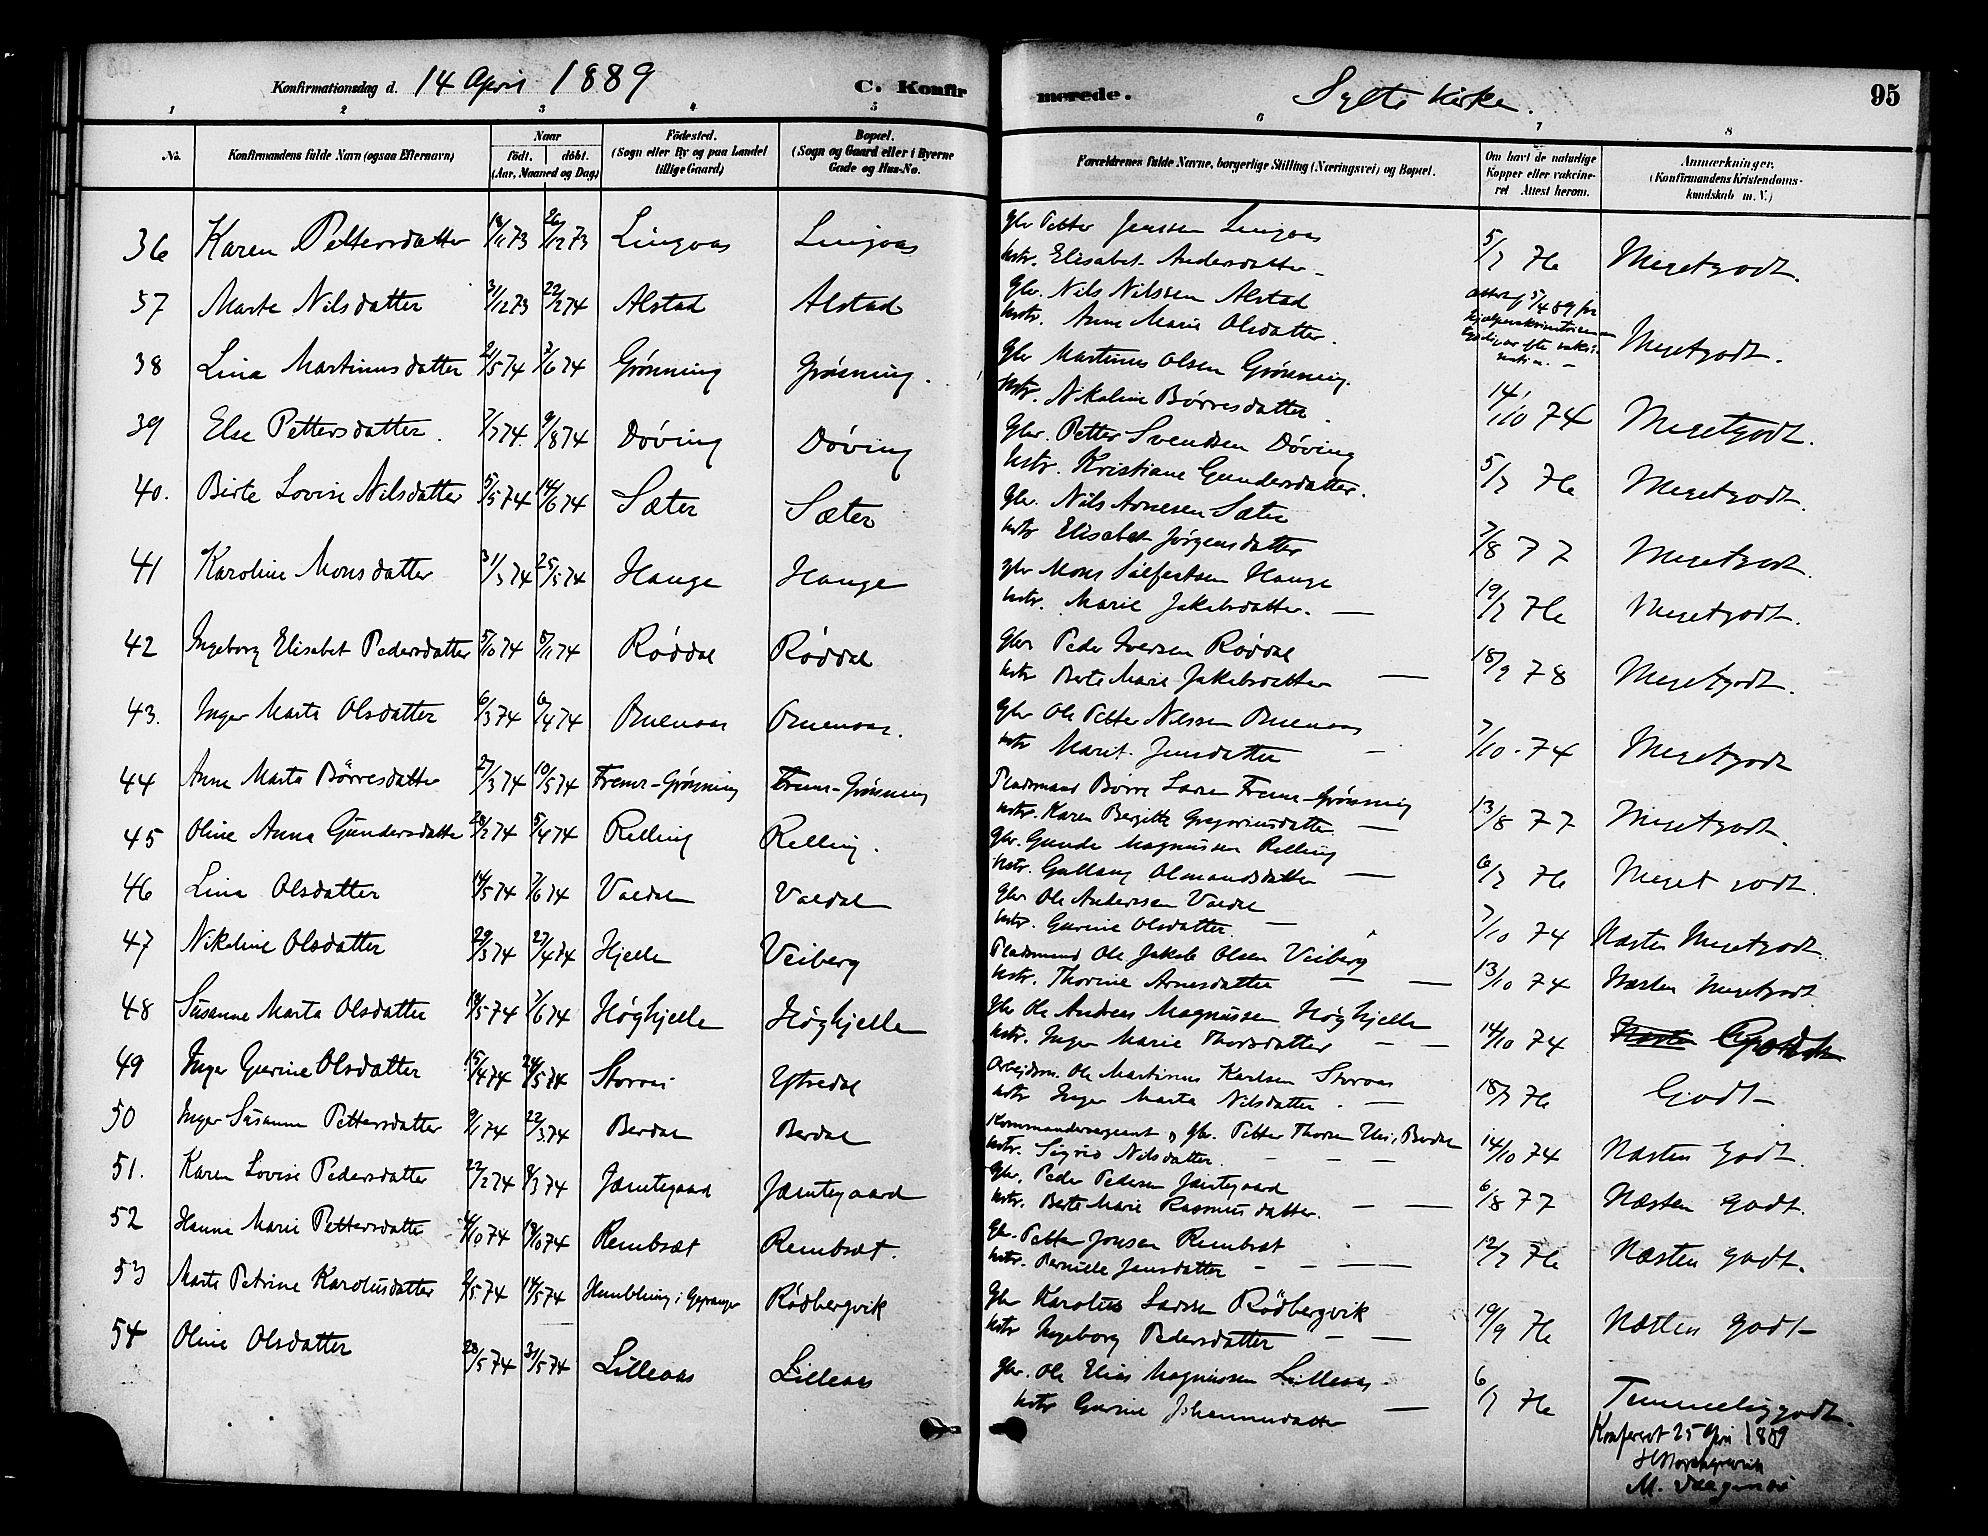 Konfirmationsdag d. 14 April 1889 C. Konfir
merede. Sylte Kirke. 95
1 2 3 4 5 6 7 8
No.
Konfirmandens fulde Navn (ogsaa Efternavn)
Naar
födt. döbt.
(Aar, Maaned og Dag)
Födested.
(Sogn eller By og paa Landet
tillige Gaard)
Bopæl.
(Sogn og Gaard eller i Byerne
Gade og Hus-No.
Forældrenes fulde Navne, borgerlige Stilling (Næringsvei) og Bopæl.
Om havt de naturlige
Kopper eller vakcine-
ret Attest herom.
Anmærkninger.
(Konfirmandens Kristendoms-
kundskab m. V.)
36 Karen Pettersdatter 18/11 73 26/12 73 Lingaas Lingaas
Gbr Petter Jenssen Lingaas
Hstr. Elisabet Andersdatter – 5/7 76 Megetgodt.
37 Marte Nilsdatter 31/12 73 22/2 74 Alstad Alstad
Gbr. Nils Nilssen Alstad
Hstr. Anne Marie Olsdatter. Megetgodt.
38 Lina Martinusdatter 2/5 74 7/6 74 Grønning Grønning.
Gbr Martinus Olsen Grønning.
Hstr. Nikoline Børresdatter. 14/10 74 Megetgodt.
39 Else Pettersdatter. 7/7 74. 9/8 74 Døving Døving
Gbr. Petter Svendsen Døving
Hstr. Kristiane Gundersdatter. 5/7 76 Megetgodt.
40. Birte Lovise Nilsdatter 5/5 74 14/6 74 Sæter Sæter
Gbr. Nils Arnesen Sæter
Hstr Elisabet Jørgensdatter 7/8 77 Megetgodt.
41 Karoline Monsdatter 31/3 74 25/5 74 Hauge Hauge
Gbr Mons Sølfestsen Hauge
Hstr. Marie Jakobsdatter. — 19/7 76 Megetgodt.
42 Ingeborg Elisabet Pedersdatter 5/10 74 8/11 74 Røddal Røddal
Gbr Peder Iversen Røddal
Hstr Berte Marie Jakobsdatter — 18/9 78 Megetgodt.
43. Inger Marta Olsdatter 6/3 74 6/4 74 Bruenaas Bruenaas.
Gbr Ole Petter Nilssen Bruenaas
Hstr Marit Jensdatter – 7/10 - 74 Megetgodt
44 Anne Marta Børresdatter 27/3 74 10/5 74 Frems-Grønning Frems-Grønning
Pladsmand Børre Larsen Frems-Grønning
Hstr. Karen Bergitte Gregoriusdatter. — 13/8 77 Megetgodt.
45 Oline Anna Gundersdatter 28/2 74 5/4 74 Relling Relling.
Gbr. Gunder Magnussen Relling
Hstr. Gallaug Olmandsdatter — 6/7 76 Meget godt.
46 Lina Olsdatter 14/5 74 7/6 74 Valdal Valdal
Gbr Ole Andersen Valdal
Hstr. Gurine Olsdatter. – 7/10 74 Næsten Megetgodt.
47 Nikoline Olsdatter 29/3 74 27/4 74 Hjelle Veiberg
Pladsmand Ole Jakob Olsen Veiberg
Hstr. Thorine Arnesdatter — — 13/10 74 Næsten Megetgodt
48 Susanne Marta Olsdatter 18/5 74 7/6 74 Høghjelle Høghjelle
Gbr Ole Andreas Magnussen Høghjelle
Hstr. Inger Marie Thorsdatter – – 14/10 74 Næsten Godt
49 Inger Gurine Olsdatter 15/4 74 24/5 74 Storaas Ytredal
Arbejdsm. Ole Martinus Karlsen Storaas
Hstr Inger Marta Nilsdatter. — 18/7 76 Godt –
50 Inger Susanne Pettersdatter 9/1 74 22/3 74 Berdal Berdal
Kommandersergeant og Gbr. Petter Thorsen Uri, Berdal
Hstr. Sigrid Nilsdatter. – – – 14/10 74 Næsten Godt.
51. Karen Lovise Pedersdatter 22/2 74 8/3 74 Jamtegaard Jamtegaard
Gbr. Peder Pedersen Jamtegaard
Hstr. Berte Marie Rasmusdatter. — — 6/8 77 Næsten godt.
52 Hanna Marie Pettersdatter 4/10 74 18/10 74 Rembsæt Rembsæt.
Gbr. Petter Jonsen Rembsæt
Hstr. Pernille Jensdatter – – — 12/7 76 Næsten godt.
53 Marte Petrine Karolusdatter 2/5 74 14/5 74 Humblung i Geiranger Rødbergvik
Gbr Karolus Larsen Rødbergvik
Hstr Ingeborg Pedersdatter – — 19/9 76 Næsten godt –
54 Oline Olsdatter 28/5 74 31/5 74 Lilleaas Lilleaas
Gbr. Ole Elias Magnussen Lilleaas.
Hstr Gurine Johannesdatter — 6/7 76 Temmeliggodt.
Konfereret 25 Apr 1889